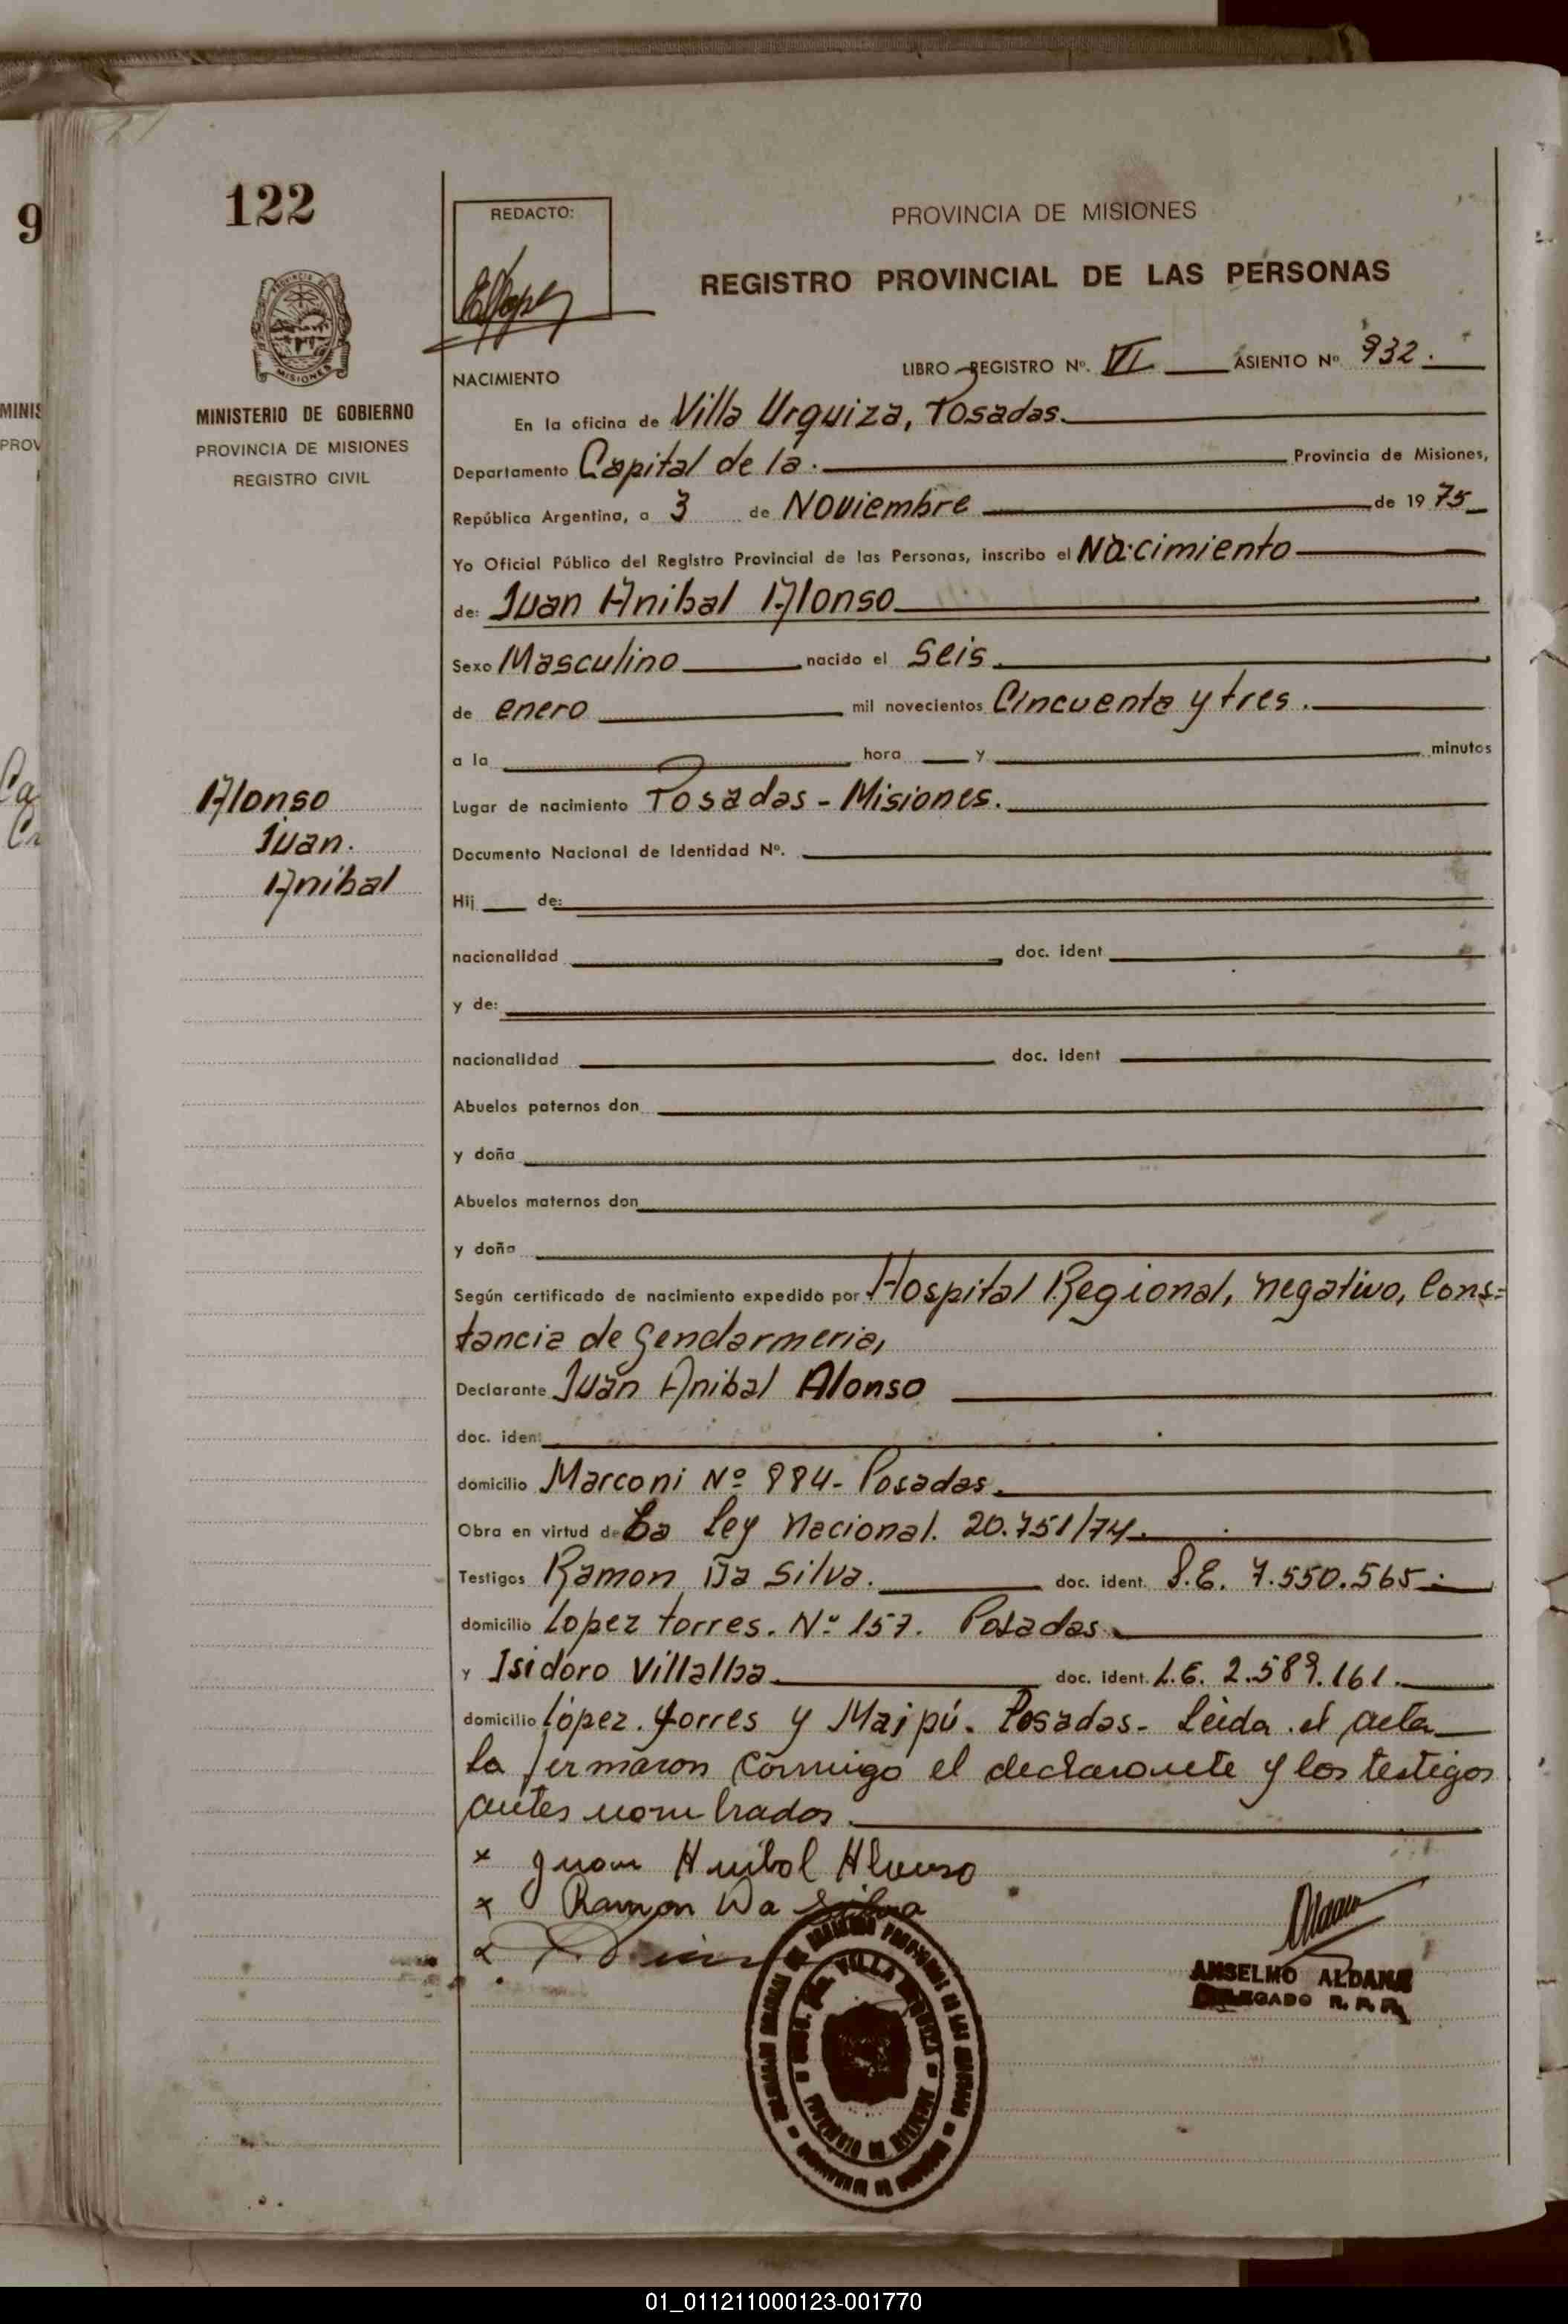 122
MINISTERIO DE GOBIERNO
PROVINCIA DE MISIONES
REGISTRO CIVIL
Alonso
Juan.
Anibal
REDACTO:
PROVINCIA DE MISIONES
REGISTRO PROVINCIAL DE LAS PERSONAS
LIBRO REGISTRO Nº. VI ASIENTO Nº 932.
NACIMIENTO
En la oficina de Villa Urquiza, Posadas.
Departamento Capital de la. Provincia de Misiones,
República Argentina, a 3 de Noviembre de 1975
Yo Oficial Público del Registro Provincial de las Personas, inscribo el Nacimiento
de: Juan Anibal Alonso
Sexo Masculino nacido el Seis
de enero mil novecientos Cincuenta y tres.
a la hora y minutos
Lugar de nacimiento Posadas - Misiones.
Documento Nacional de Identidad Nº.
Hij de:
nacionalidad doc. ident
y de:
nacionalidad doc. ident
Abuelos paternos don
y doña
Abuelos maternos don
y doña
Según certificado de nacimiento expedido por Hospital Regional, negativo, Cons=
tancia de Gendarmeria,
Declarante Juan Anibal Alonso
doc. iden:
domicilio Marconi Nº 884- Posadas.
Obra en virtud de La Ley Nacional. 20.751/74.
Testigos Ramon Da Silva. doc. ident. L.E. 7.550.565.
domicilio Lopez torres. Nº 157. Posadas
y Isidoro Villalba doc. ident. L.E. 2.589.161.
domicilio López. Torres y Maipú. Posadas- Leida el acta
la firmaron conmigo el declarante y los testigos
antes nombrados
x Juan Anibal Alonso
x Ramon Da Silva
ANSELMO ALDANA
DELEGADO R. P. P.
VILLA URQUIZA
01_011211000123-001770